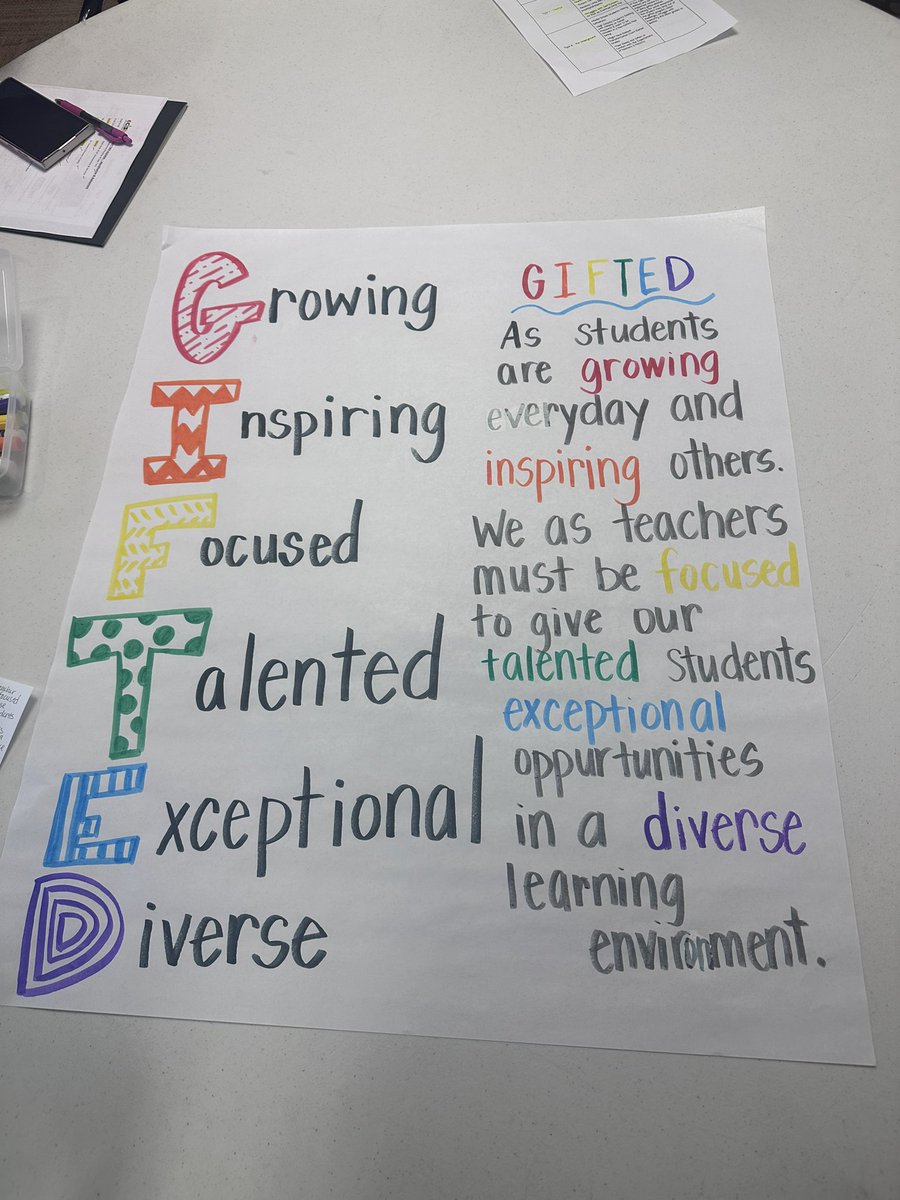 Growing
Inspiring
Focused
Talented
Exceptional
Diverse
GIFTED
As students
are growing
everyday and
inspiring others.
We as teachers
must be focused
to give our
talented students
exceptional
oppurtunities
in a diverse
learning
environment.